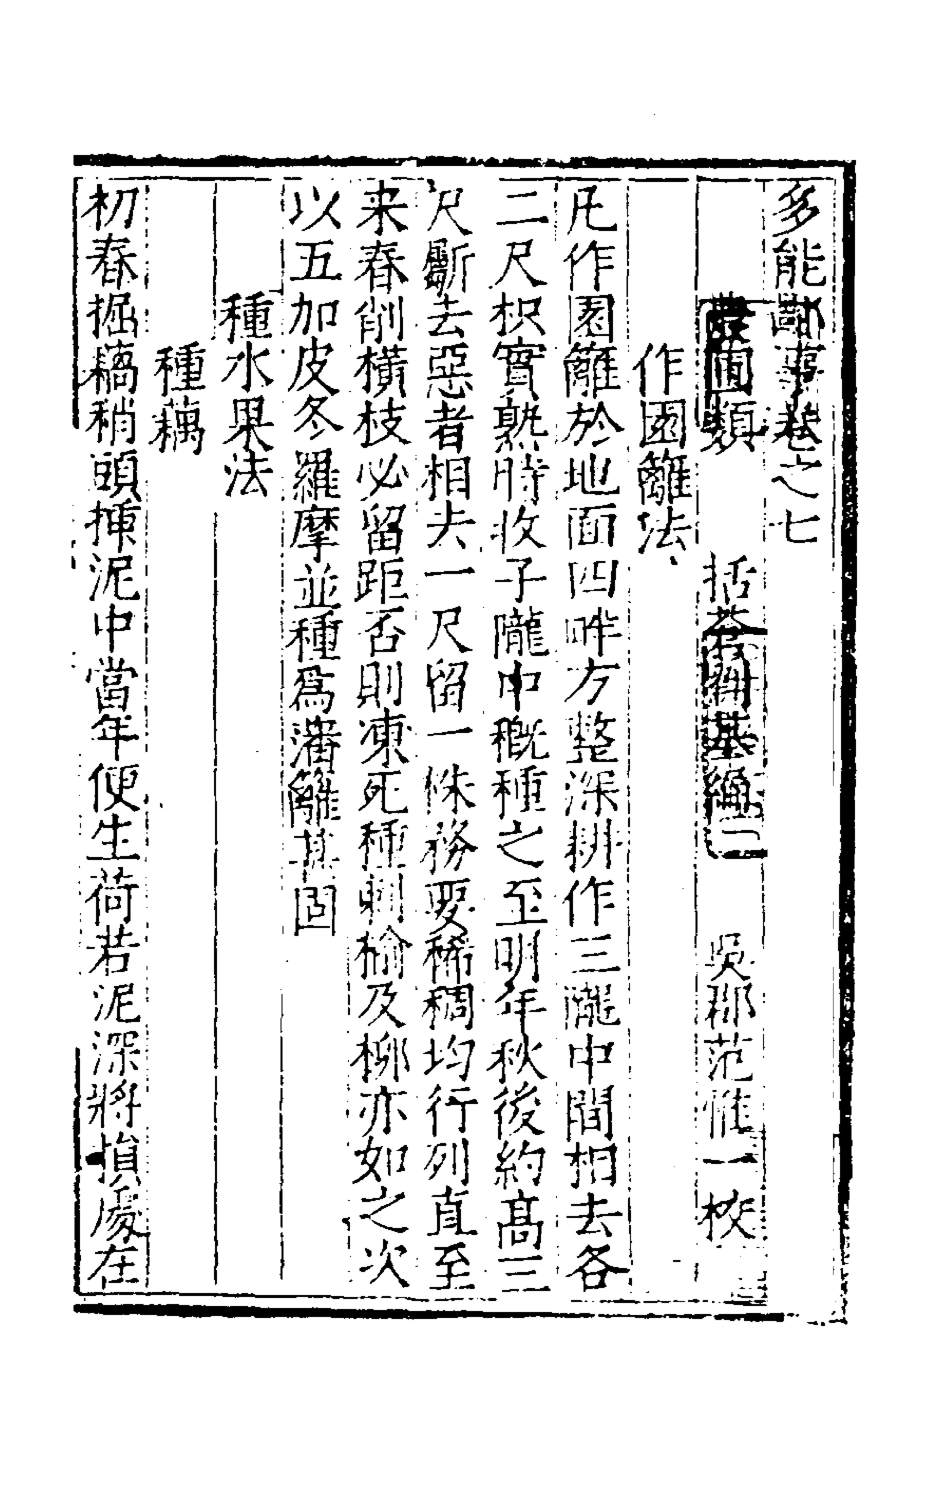 多能鄙事卷之七
農圃類　括蒼劉基編　吳郡范惟一校
作園籬法
凡作園籬於地面四畔方整深耕作三隴中間相去各
二尺枳實熟時收子隴中穊種之至明年秋後約高三
尺斸去惡者相去一尺留一株務要稀稠均行列直至
来春削橫枝必留距否則凍死種刺榆及柳亦如之次
以五加皮冬羅摩並種爲藩籬甚固
種水果法
種藕
初春掘藕稍頭揷泥中當年便生荷若泥深將損處在